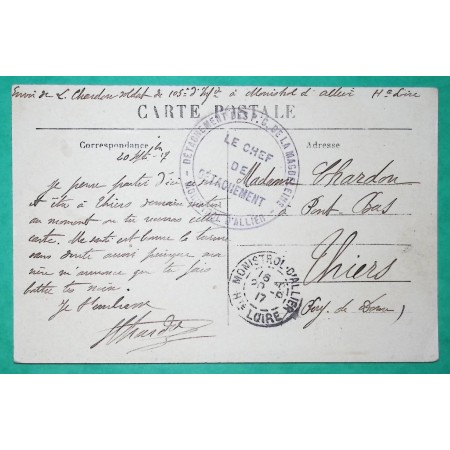 Envoi de L. Chardon soldat du 105e d'Infie à Monistrol d'allier Hte Loire
CARTE POSTALE
Correspondance
Adresse
DÉTACHEMENT DES P.G. DE LA MAGDELEINE
LE CHEF
DE
DÉTACHEMENT
MONISTROL D'ALLIER
Madame Chardon
à Pont-Bas
Thiers
(Puy. de Dome)
20 - 17
Je pense partir d'ici
et être à Thiers demain matin
au moment où tu recevras cette
carte. Ma santé est bonne la tienne
sans doute aussi puisque ta
mère m'annonce que tu fais
Je t'embrasse
Chardon
MONISTROL-D'ALLIER
16
20 -9
17
HTE LOIRE